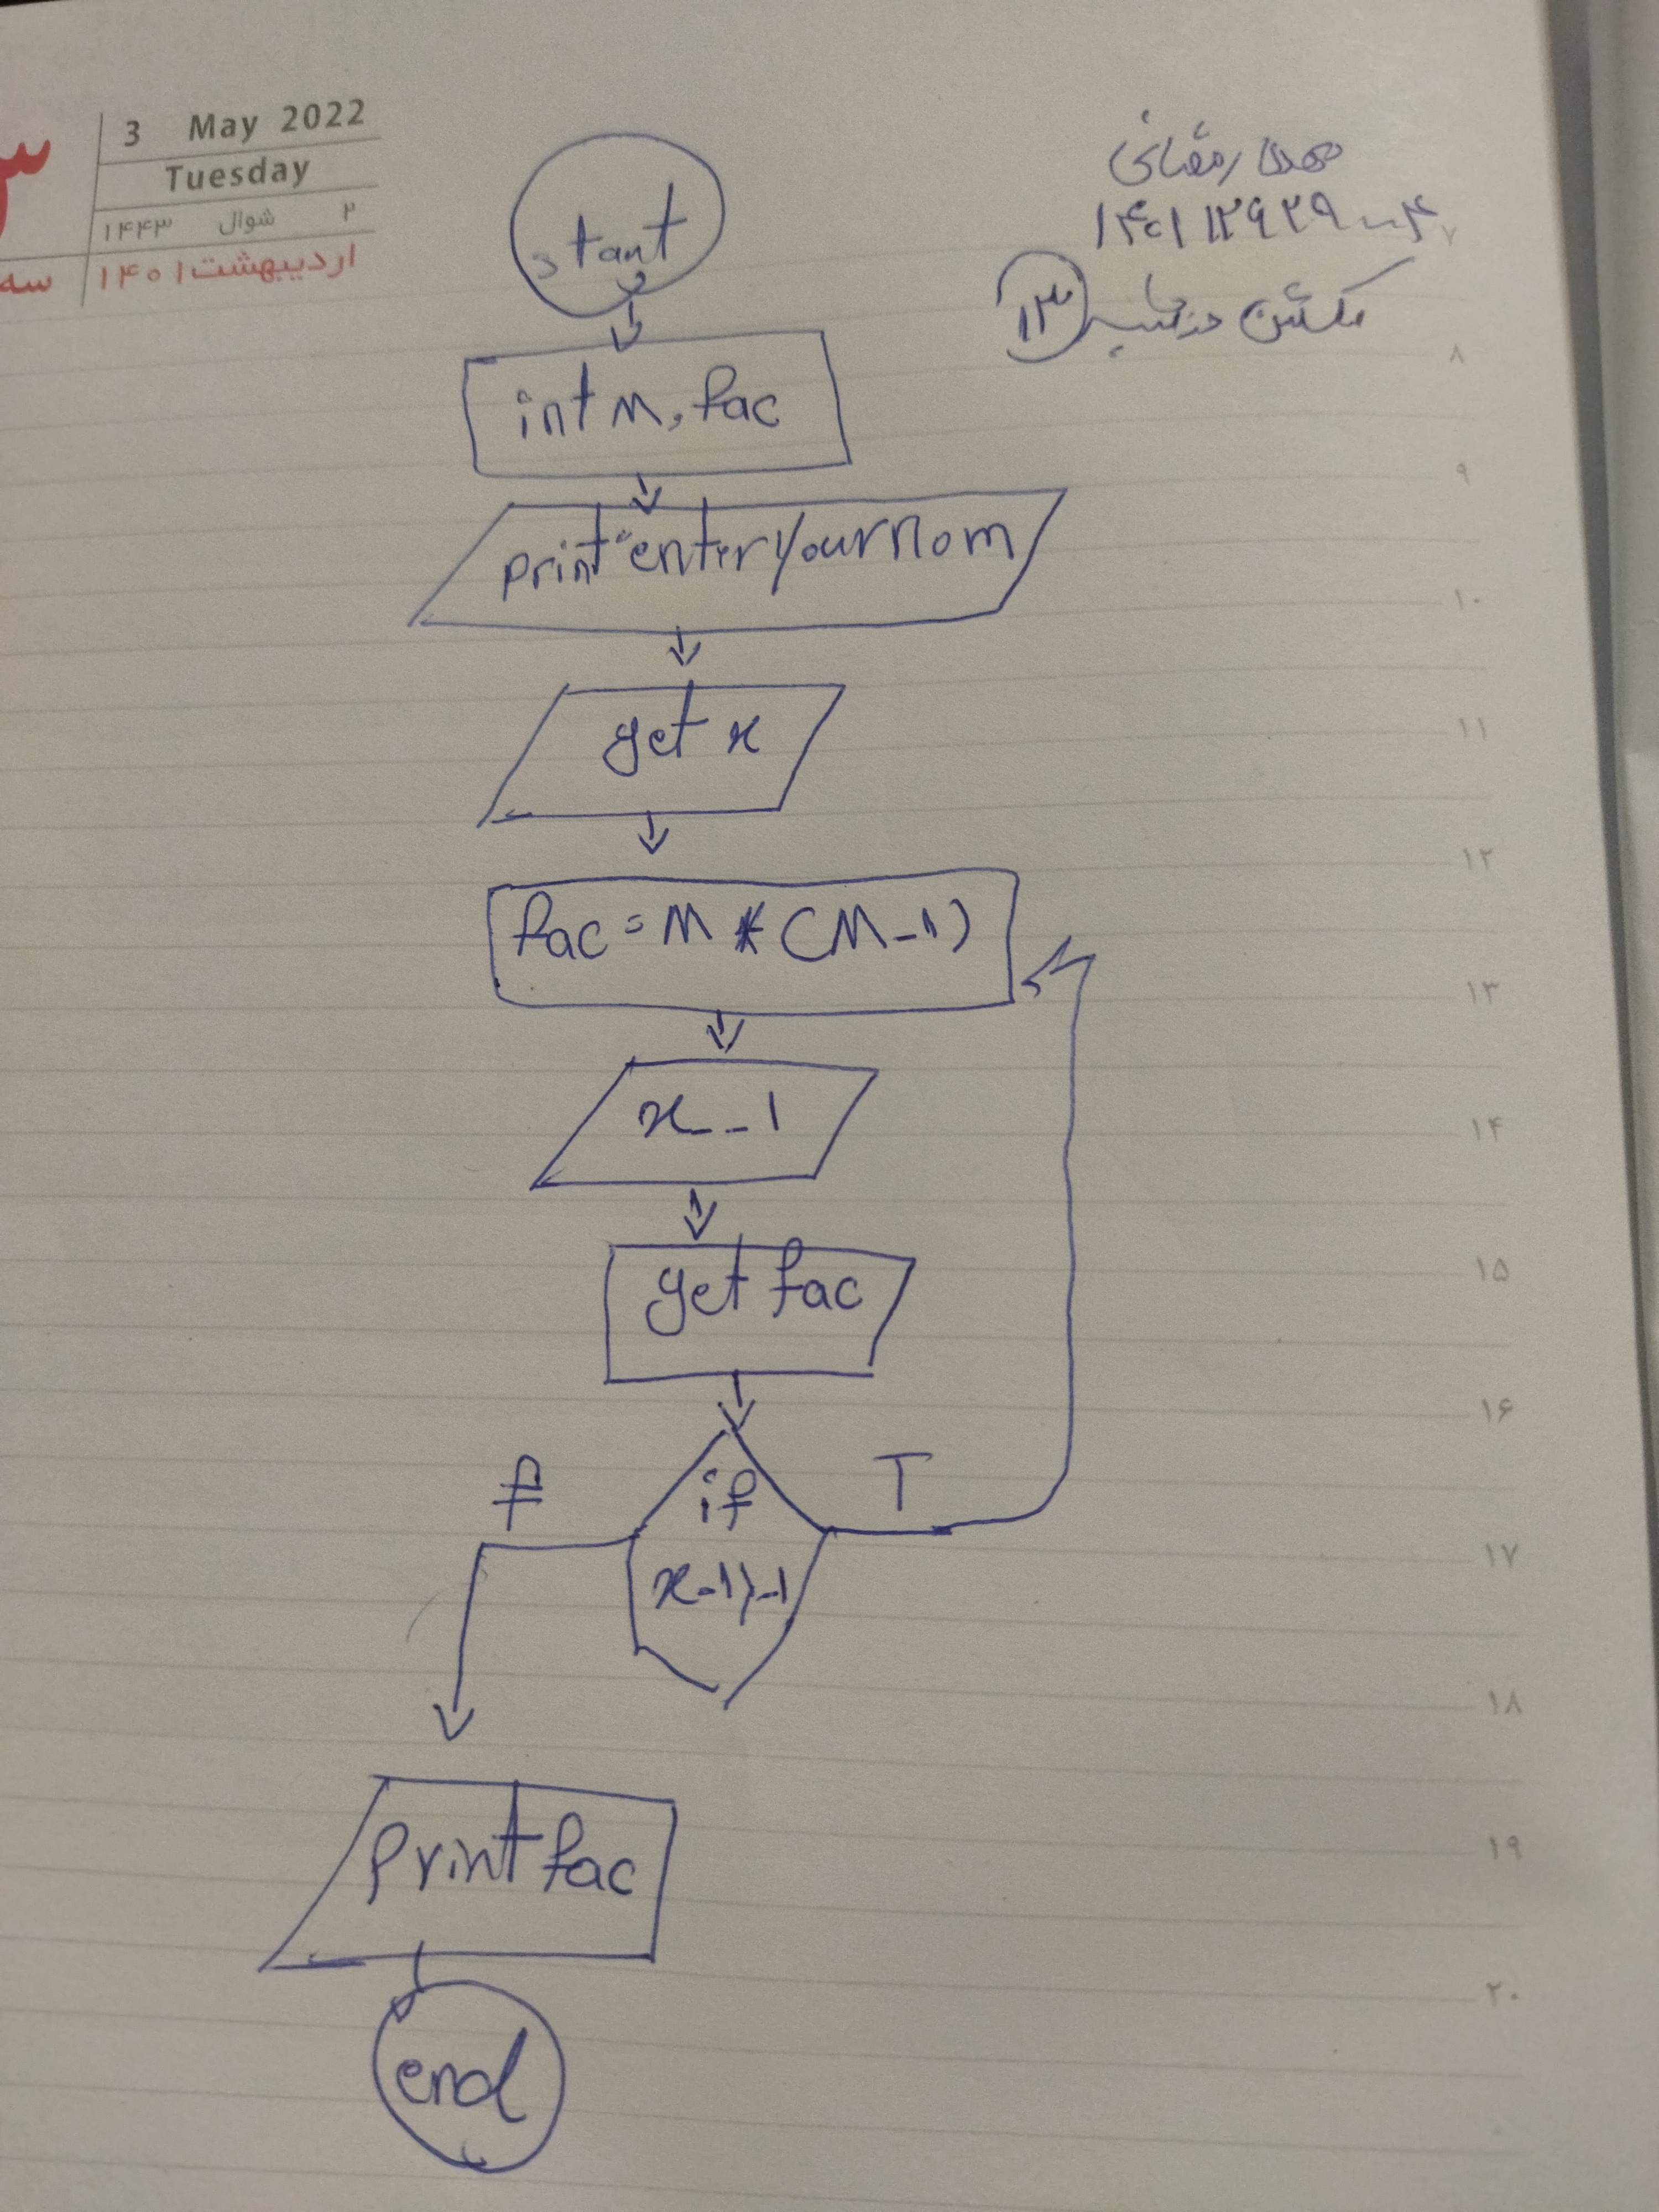 3 May 2022
Tuesday
۲ شوال ۱۴۴۳
اردیبهشت ۱۴۰۱
سه
مهدی رمضانی
۱۴۰۱۱۲۹۲۹۰۰۴
۱۳
start
int x, fac
print "enter your nom
get x
fac = x * (x-1)
x--1
get fac
if
x-1>-1
f
T
print fac
end
۷
۸
۹
۱۰
۱۱
۱۲
۱۳
۱۴
۱۵
۱۶
۱۷
۱۸
۱۹
۲۰